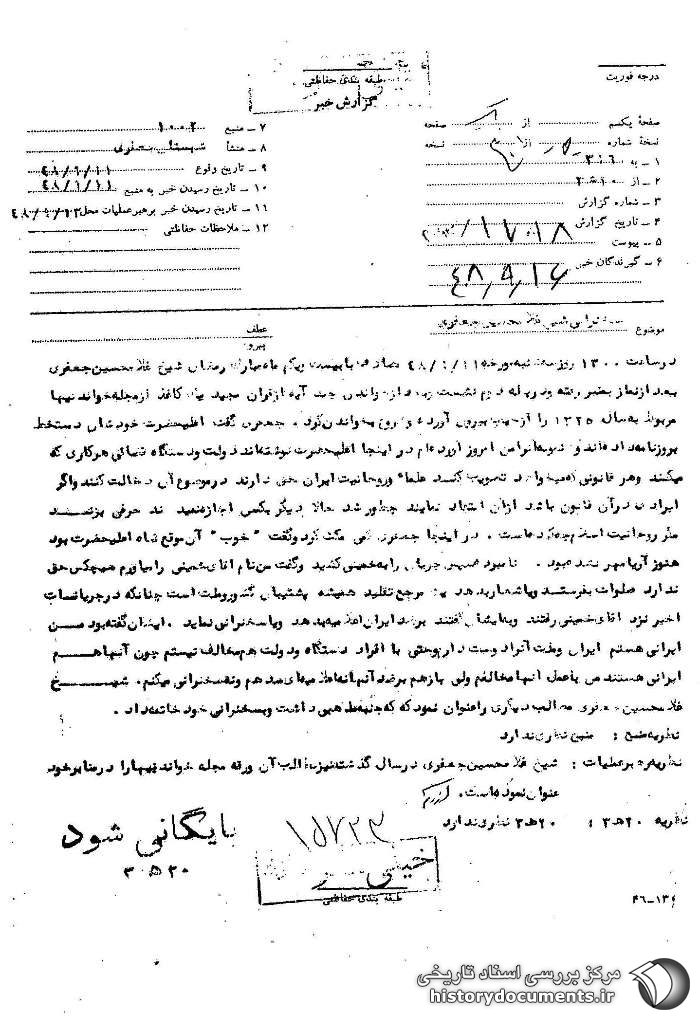 درجه فوریت
طبقه بندی حفاظتی
گزارش خبر
صفحهٔ یکم از یک صفحه
نسخهٔ شماره از نسخه
۱ ـ به ۳۱۶
۲ ـ از
۳ ـ شماره گزارش
۴ ـ تاریخ گزارش
۵ ـ پیوست
۶ ـ گیرندگان خبر
۷ ـ منبع ۱۰۰۲
۸ ـ منشأ
۹ ـ تاریخ وقوع
۱۰ ـ تاریخ رسیدن خبر به منبع
۱۱ ـ تاریخ رسیدن خبر برهبر عملیات محل
۱۲ ـ ملاحظات حفاظتی
موضوع سخنرانی شیخ غلامحسین جعفری
عطف
پیرو
در ساعت ۱۳۰۰ روز مصادف با بیست ویکم ماه مبارک رمضان شیخ غلامحسین جعفری
بعد از نماز بمنبر رفته ودر پله دوم نشست وبعد از خواندن چند آیه از قرآن مجید یک کاغذ از مجله خواندنیها
مربوط به سال ۱۳۲۵ را از جیب بیرون آورده و شروع بخواندن کرد . جعفری گفت اعلیحضرت خودشان دستخط
بروزنامه داده‌اند و من امروز آورده‌ام در اینجا اعلیحضرت نوشته‌اند دولت ودستگاه قضائی هرکاری که
میکنند وهر قانونی که میخواهد تصویب کنند علماء وروحانیت ایران حق دارند در موضوع آن دخالت کنند واگر
ایرادی در آن قانون باشد از آن انتقاد نمایند چطور شد حالا دیگر بکسی اجازه نمیدهند حرفی بزنند
مگر روحانیت اسلام چه کرده است . در اینجا جعفری کمی مکث کرد وگفت " خوب " آن موقع شاه اعلیحضرت بود
هنوز آریامهر نشده بود . نامبرده سپس جریان را به خمینی کشید وگفت من نام آقای خمینی را میآورم هیچکس حق
ندارد صلوات بفرستد مرجع تقلید همیشه پشتیبان کشور وملت است چنانکه در جریانات
اخیر نزد آقای خمینی رفتند وبایشان گفتند برضد ایران اعلامیه بدهد ویا سخنرانی نماید . ایشان گفته بود من
ایرانی هستم ایران وملت آنرا دوست دارم وحتی با افراد دستگاه ودولت هم مخالف نیستم چون آنها هم
ایرانی هستند من باعمل آنها مخالفم ولی باز هم برضد آنها نه اعلامیه‌ای میدهم ونه سخنرانی میکنم. شیخ
غلامحسین جعفری مطالب دیگری را عنوان نمود که جنبه مذهبی داشت وبسخنرانی خود خاتمه داد .
نظریه منبع : منبع نظری ندارد
نظریه رهبر عملیات : شیخ غلامحسین جعفری در سال گذشته نیز مطالب آن ورقه مجله خواندنیها را در منابر خود
عنوان نموده است.
نظریه ۲۰ ه ۳ : ۲۰ ه ۳ نظری ندارد
بایگانی شود
۱۵۷۲۳
خیلی
طبقه بندی حفاظتی
مرکز بررسی اسناد تاریخی
historydocuments.ir